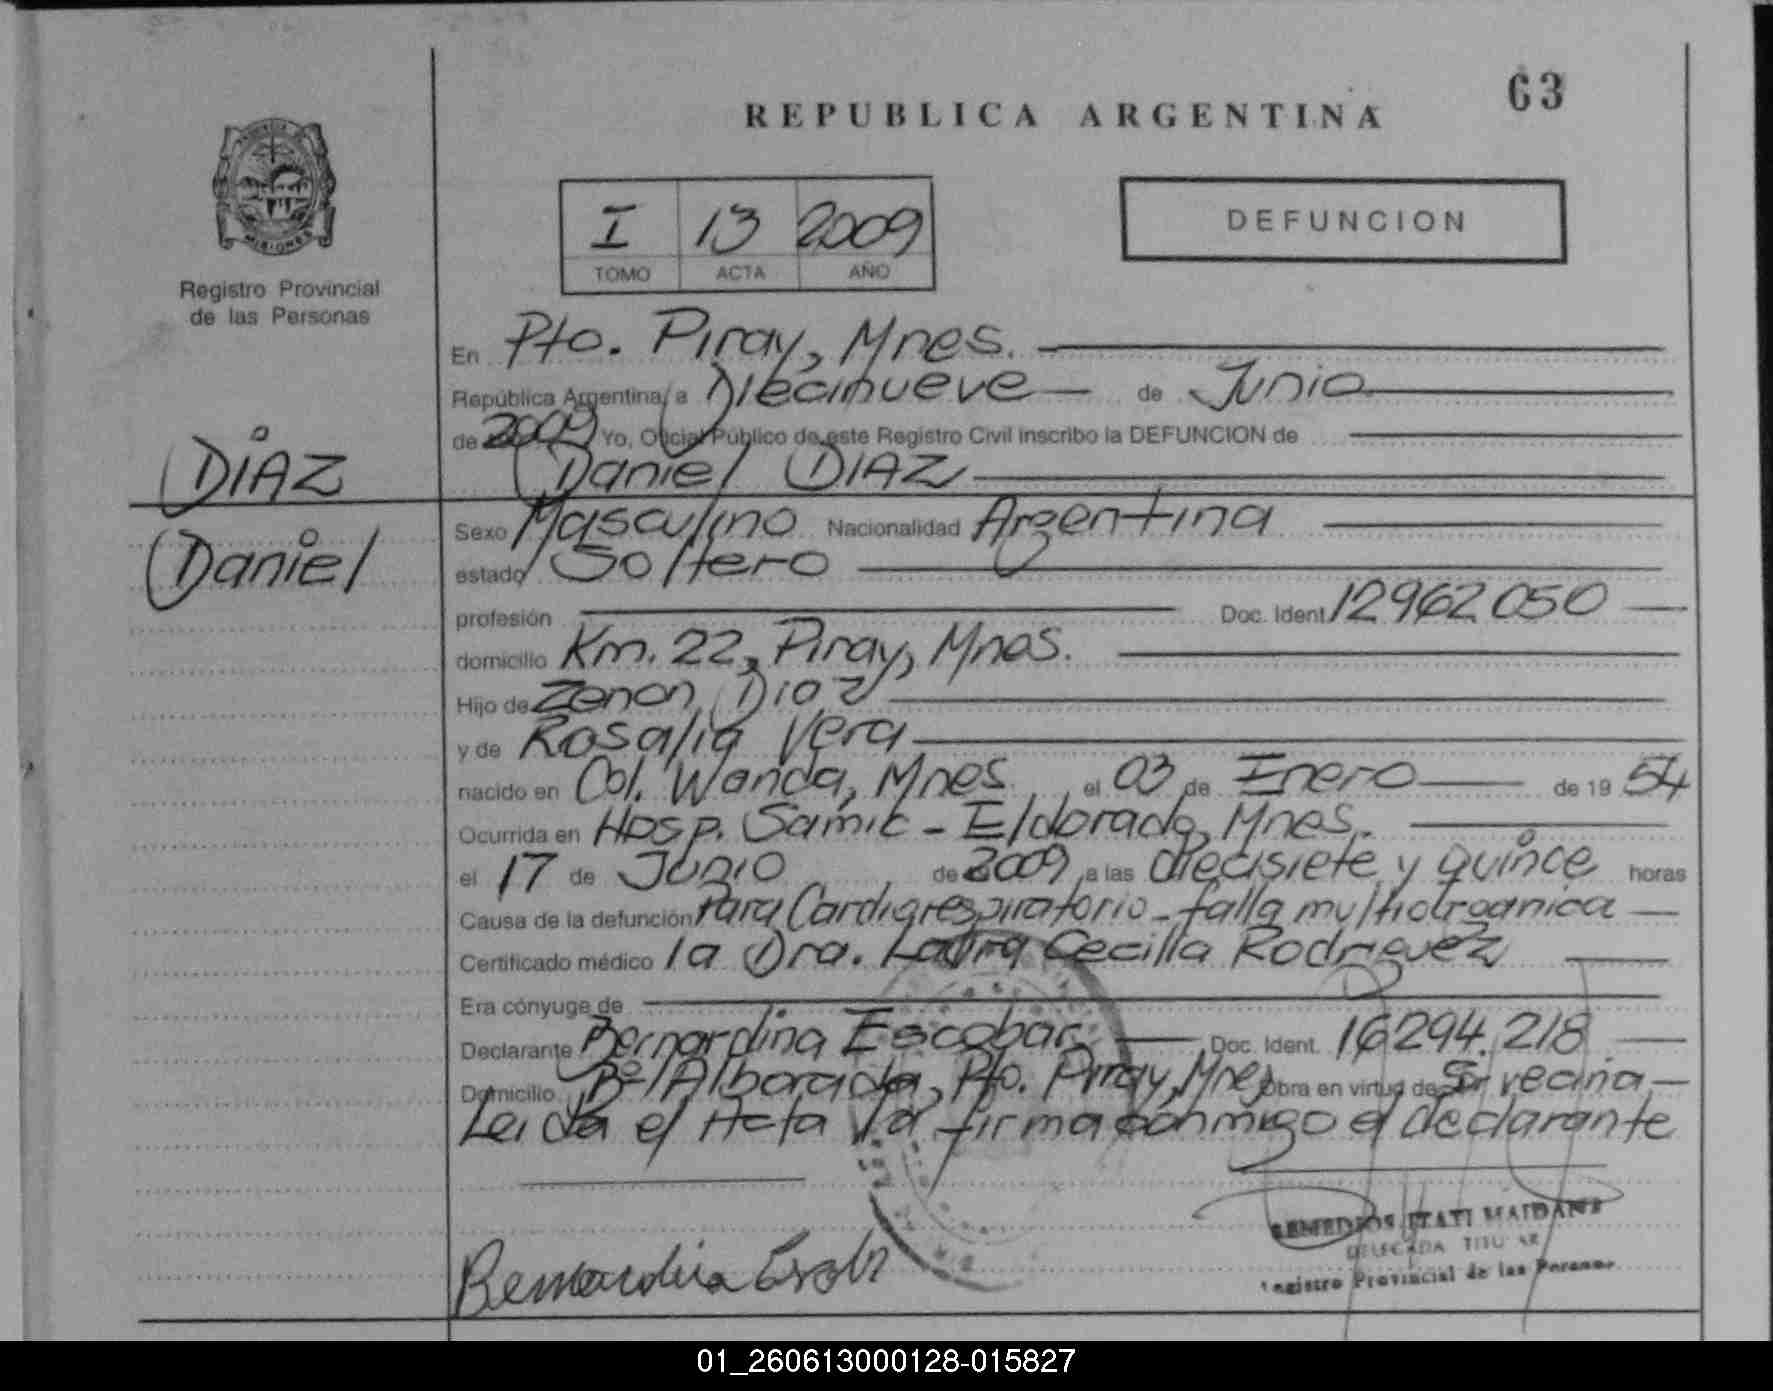 63
REPUBLICA ARGENTINA
I 13 2009
TOMO ACTA AÑO
DEFUNCION
MISIONES
Registro Provincial
de las Personas
En Pto. Piray, Mnes.
República Argentina, a Diecinueve de Junio
de 2009 Yo, Oficial Público de este Registro Civil inscribo la DEFUNCION de
Daniel DIAZ
DIAZ
Daniel
Sexo Masculino Nacionalidad Argentina
estado Soltero
profesión Doc. Ident. 12962050
domicilio Km. 22, Piray, Mnes.
Hijo de Zenon Diaz
y de Rosalia Vera
nacido en Col. Wanda, Mnes. el 03 de Enero de 1954
Ocurrida en Hosp. Samic - Eldorado, Mnes.
el 17 de Junio de 2009 a las diecisiete y quince horas
Causa de la defunción Paro Cardiorespiratorio - falla multiorganica
Certificado médico la Dra. Laura Cecilia Rodriguez
Era cónyuge de
Declarante Bernardina Escobar Doc. Ident. 16294.218
Domicilio Bº Alborada, Pto. Piray, Mnes Obra en virtud de Ser vecina
Leida el Acta la firma conmigo el declarante
REMEDIOS ITATI MAIDANA
DELEGADA TITULAR
Registro Provincial de las Personas
Bernardina
01_260613000128-015827